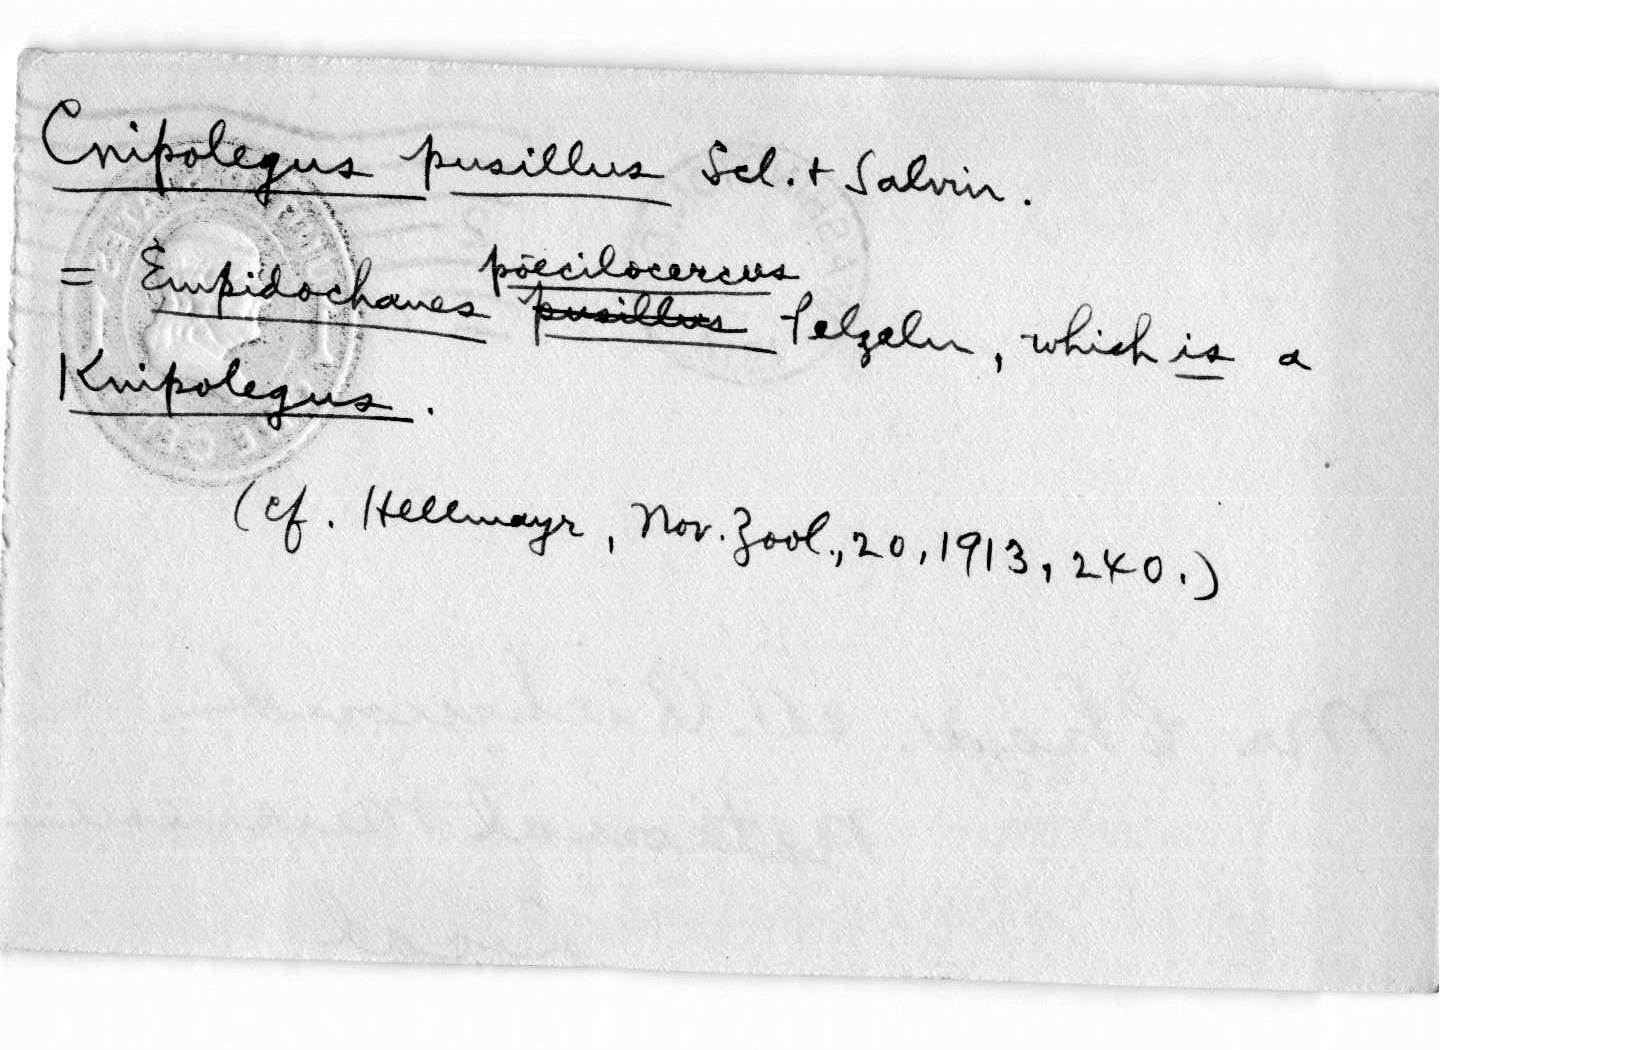 Cnipolegus pusillus Scl. + Salvin.
= Empidochanes poecilocercus pusillus Pelzeln, which is a
Knipolegus.
(cf. Hellmayr, Nov. Zool., 20, 1913, 240.)